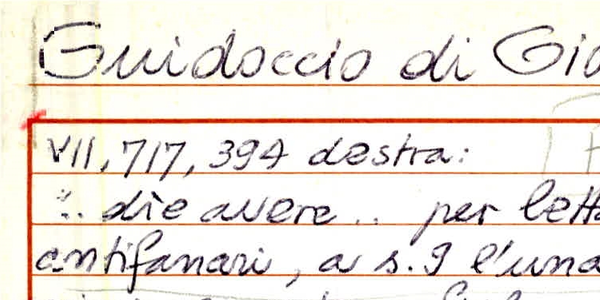 Guidoccio di Gio
VII, 717, 394 destra:
:. die avere .. per lett
antifanari, a s. 9 l'una